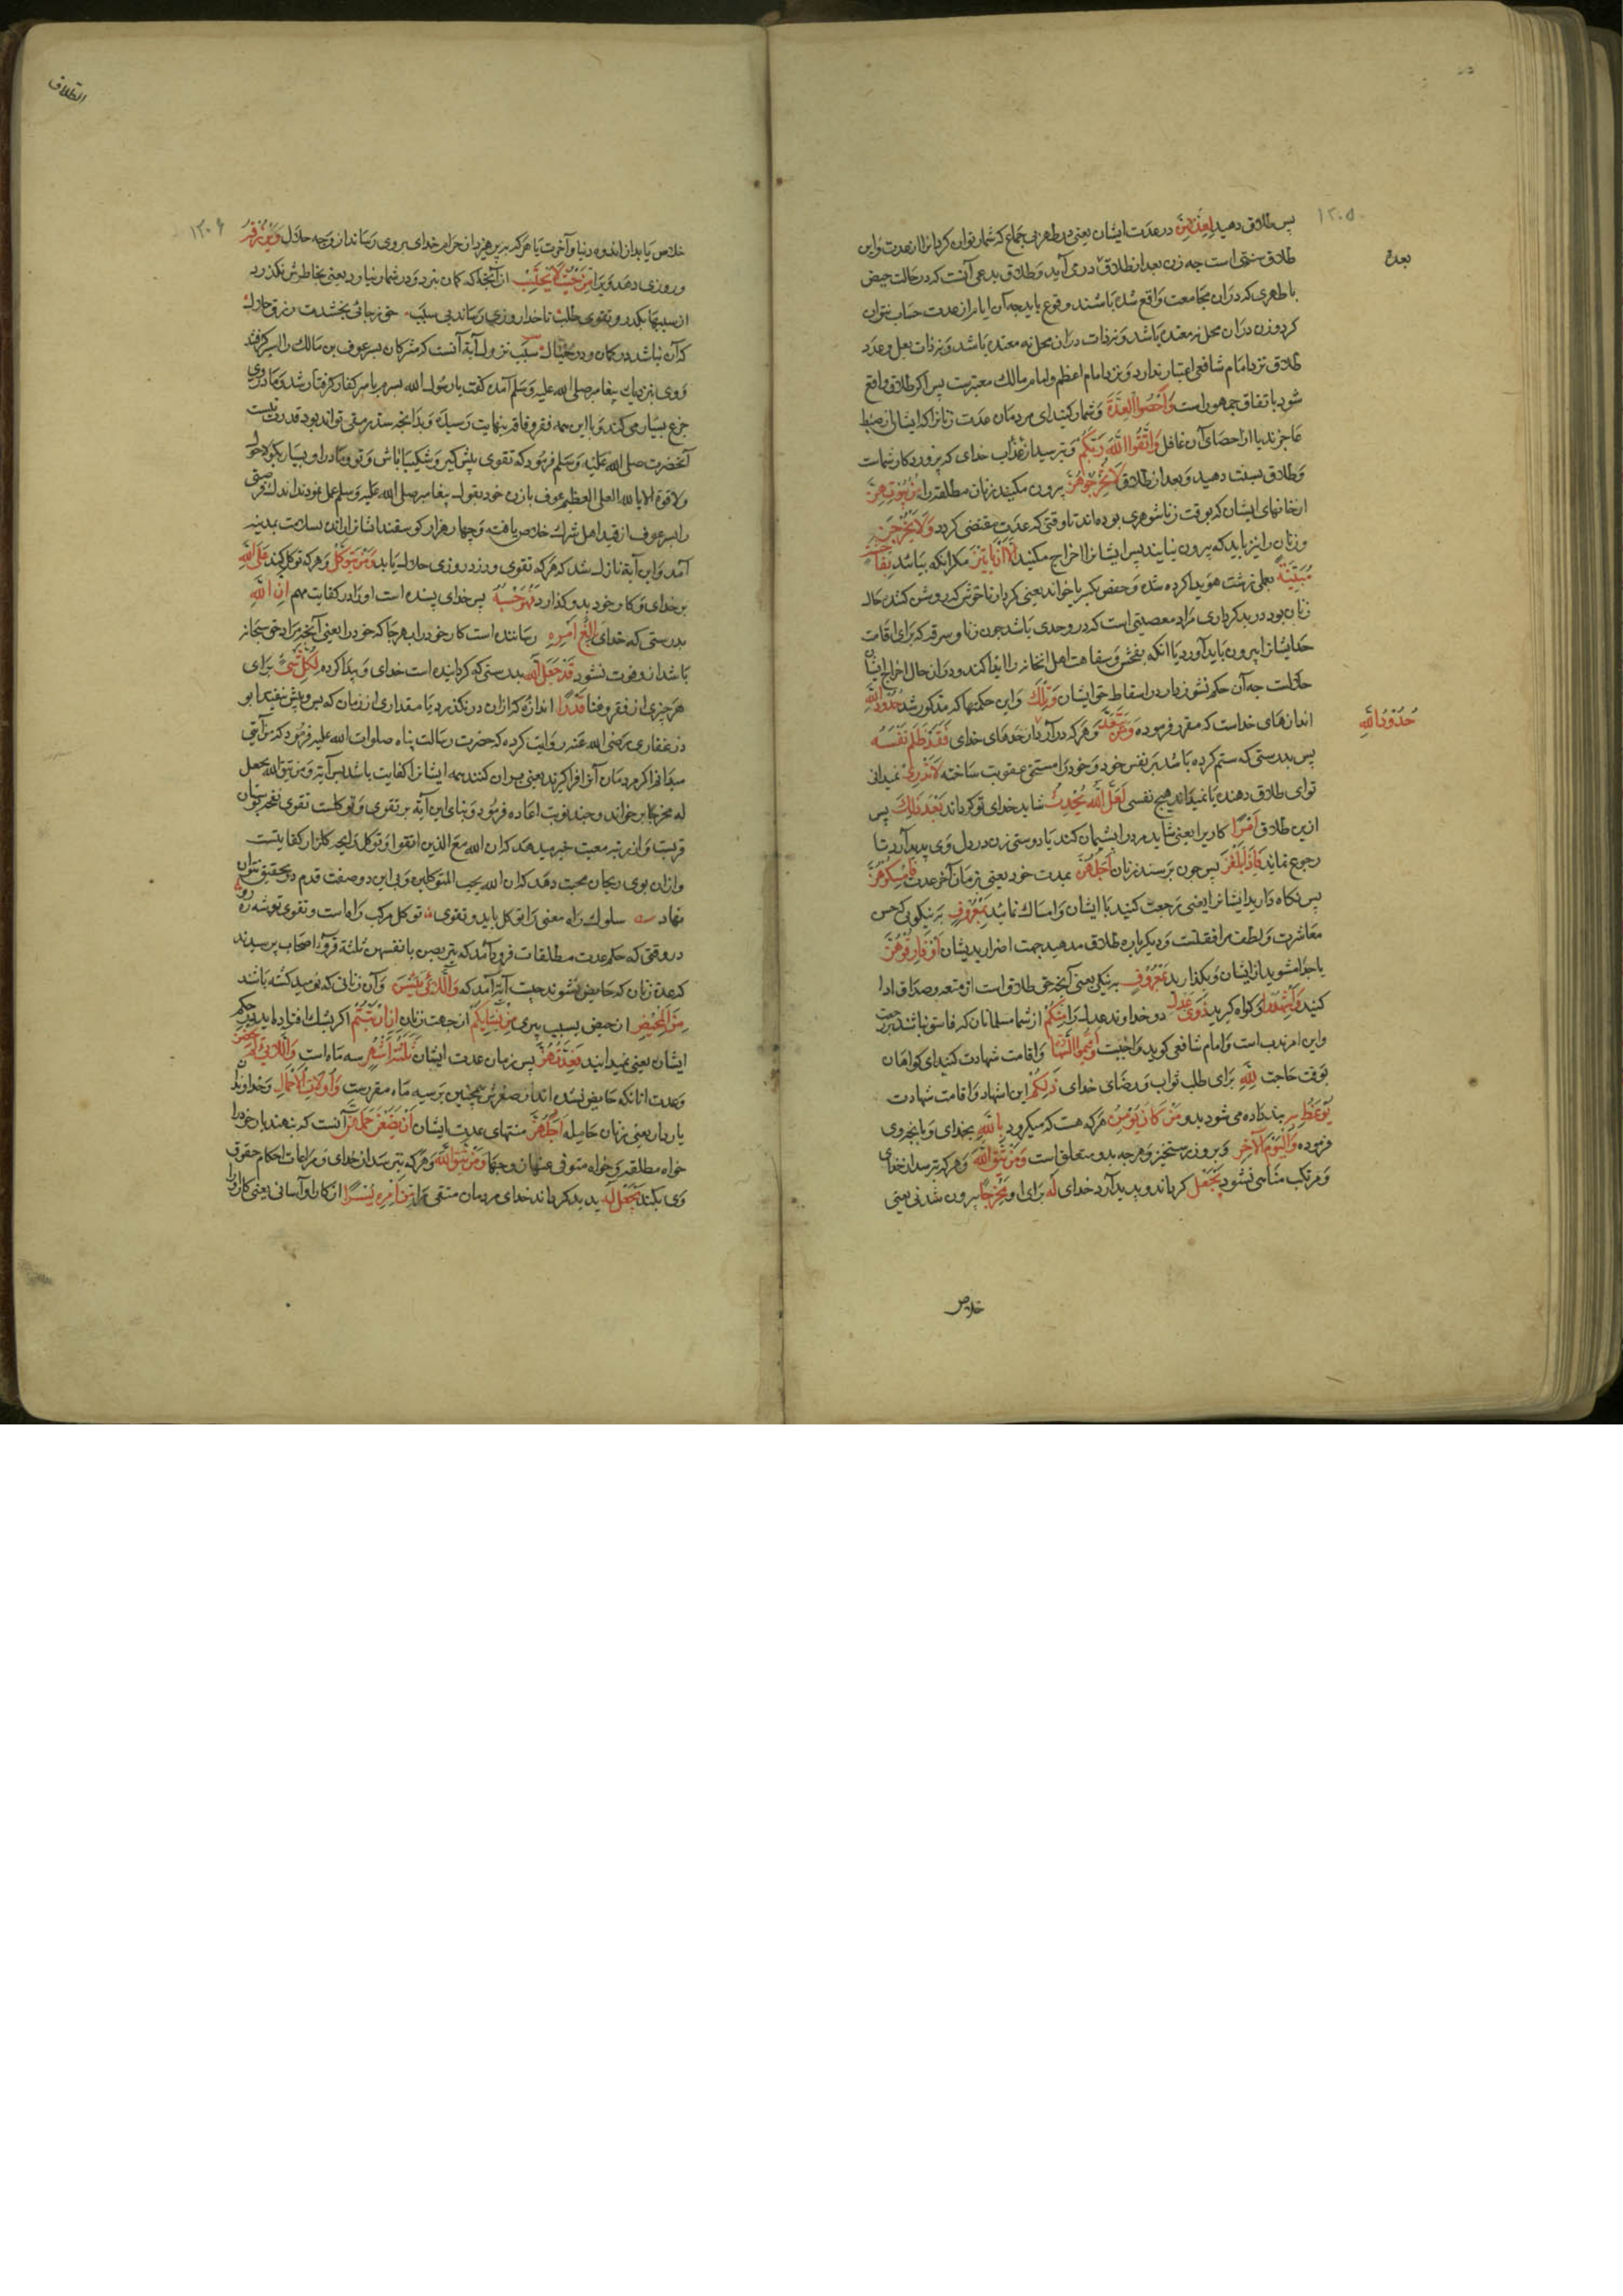 ۱۲۰۵
پس طلاق دهید لِعِدَّتِهِنَّ در عدت ایشان یعنی در طهر بی جماع که شمار توان کرد آنرا از عدت و این
طلاق سنتی است چه زن بعد از طلاق در می آید و طلاق بدعی آنست که در حالت حیض
بعدة
یا طهری که در آن مجامعت واقع شده باشند وقوع یابد چه آن ایام را از عدت حساب نتوان
کرد و زن در آن محل نه معتده باشد و نه ذات در آن محل نه معتده باشد و نه ذات بعل و عدد
طلاق نزد امام شافعی اعتبار ندارد و نزد امام اعظم و امام مالک معتبرست پس اگر طلاق واقع
شود باتفاق جمهور است وَأَحْصُوا الْعِدَّةَ و شمار کنید ای مردمان عدت زنانرا که ایشان از ضبط
عاجزند یا از احصای آن غافل وَاتَّقُوا اللَّهَ رَبَّكُمْ و بترسید از عذاب خدای که پروردکار شماست
و طلاق بسنت دهید و بعد از طلاق لَا تُخْرِجُوهُنَّ بیرون مکنید زنان مطلقه را مِنْ بُيُوتِهِنَّ
از خانهای ایشان که بوقت زناشوهری بوده اند تا وقتی که عدت منقضی کردد وَلَا يَخْرُجْنَ
و زنان را نیز باید که بیرون نیایند پس ایشانرا اخراج مکنید إِلَّا أَنْ يَأْتِينَ مکر آنکه بیایند بِفَاحِشَةٍ
مُبَيِّنَةٍ بعملی زشت هویدا کرده شده و حفص بکسر یا خواند یعنی کردار ناخوش که روشن کننده حال
زنان بود در بدکرداری مراد معصیتی است که در و حدی باشد چون زنا و سرقه که برای اقامت
حد ایشانرا بیرون باید آورد یا آنکه بفحش و سفاهت اهل آنخانه را ایذا کنند و در آن حال اخراج ایشان
حلالست چه آن حکم نشوز دارد در اسقاط حق ایشان وَتِلْكَ و این حکمتها که مذکور شد حُدُودُ اللَّهِ
حُدُودُ اللَّهِ
اندازهای خداست که مقرر فرموده وَمَنْ يَتَعَدَّ و هر که در آرد از حدهای خدای فَقَدْ ظَلَمَ نَفْسَهُ
پس بدرستی که ستم کرده باشد بر نفس خود و خود را مستحق عقوبت ساخته لَا تَدْرِي نمیدانی
تو ای طلاق دهنده یا نمیداند هیچ نفسی لَعَلَّ اللَّهَ يُحْدِثُ شاید خدای تو کرداند بَعْدَ ذَلِكَ پس
ازین طلاق أَمْرًا کاریرا یعنی شاید مرد را پشیمان کند یا دوستی زن در دل وی پدید آرد تا
رجوع نماید فَإِذَا بَلَغْنَ پس چون برسند زنان أَجَلَهُنَّ بمدت خود یعنی بزمان آخر عدت فَأَمْسِكُوهُنَّ
پس نکاه دارید ایشانرا یعنی رجعت کنید با ایشان و امساک نمائید بِمَعْرُوفٍ به نیکویی که حسن
معاشرت و لطف مرافقتست و دیکر باره طلاق مدهید جهت اضرار بدیشان أَوْ فَارِقُوهُنَّ
یا جدا مشوید از ایشان و بکذارید بِمَعْرُوفٍ به نیکی یعنی آنچه حق طلاق است از متعه و صداق ادا
کنید وَأَشْهِدُوا و کواه کیرید ذَوَيْ عَدْلٍ دو خداوند عدل را مِنْكُمْ از شما مسلمانان که فاسق نباشند
و این امر ندب است و امام شافعی کوید واجبست وَأَقِيمُوا الشَّهَادَةَ و اقامت شهادت کنید ای کواهان
بوقت حاجت لِلَّهِ برای طلب ثواب و رضای خدای ذَلِكُمْ این اشهاد و اقامت شهادت
يُوعَظُ بِهِ پند داده می شود بدو مَنْ كَانَ يُؤْمِنُ هر که هست که میکرود بِاللَّهِ بخدای و بانچه وی
فرموده وَالْيَوْمِ الْآخِرِ و بروز رستخیز و هر چه بدو متعلق است وَمَنْ يَتَّقِ اللَّهَ و هر که بترسد از خدای
و مرتکب مناهی نشود يَجْعَلْ کرداند و پدید آرد خدای لَهُ برای او مَخْرَجًا بیرون شدنی یعنی
خلاص
الطلاق
۱۲۰۶
خلاص یابد از اندوه دنیا و آخرت یا هر که بپرهیزد از حرام خدای بروی رساند از وجه حلال وَيَرْزُقْهُ
و روزی دهد ویرا مِنْ حَيْثُ لَا يَحْتَسِبُ از آنجا که کمان نبرد و در شمار نیاورد یعنی بخاطرش نکذرد
از سببها بکذر و تقوی طلب تا خدا روزی رساند بی سبب حق زجائی بخشدت رزق حلال
که آن نباشد در کمان و در خیال سبب نزول آیة آنست که مشرکان پسر عوف بن مالک را اسیر کرفتند
و وی بنزدیک پیغامبر صلی الله علیه وسلم آمده کفت یا رسول الله پسرم باسر کفار کرفتار شد و مادر وی
جزع بسیار می کند و با این همه فقر و فاقه بنهایت رسیده و بدانچه سد رمقی تواند بود قدرت نیست
آنحضرت صلی الله علیه وسلم فرمود که تقوی پیش کیر و شکیبا باش و تو و مادر او بسیار بکوید لا حول
ولا قوة الا بالله العلی العظیم عوف با زن خود بقول پیغامبر صلی الله علیه وسلم عمل نمودند اندک فرصتی
را پسر عوف از قید اهل شرک خلاص یافته و چهار هزار کوسفند ایشانرا رانده بسلامت بمدینه
آمد و این آیة نازل شد که هر که تقوی ورزد روزی حلال یابد وَمَنْ يَتَوَكَّلْ و هر که توکل کند عَلَى اللَّهِ
بر خدای و کار خود بدو کذارد فَهُوَ حَسْبُهُ پس خدای بسنده است او را در کفایت مهم إِنَّ اللَّهَ
بدرستی که خدای بَالِغُ أَمْرِهِ رساننده است کار خود را بهر جا که خود را یعنی آنچه مراد حق سبحانه
باشد ازو فوت نشود قَدْ جَعَلَ اللَّهُ بدرستی که کردانیده است خدای و پیدا کرده لِكُلِّ شَيْءٍ برای
هر چیزی از فقر و غنا قَدْرًا اندازه که از آن در نکذرد یا مقداری از زمان که پس و پیش نیفتد ابو
ذر غفاری رضی الله عنه روایت کرده که حضرت رسالت پناه صلوات الله علیه فرمود که من آیتی
میدانم اکر مردمان آنرا فرا کیرند یعنی بدان کنند همه ایشانرا کفایت باشد پس آیة ومن یتق الله یجعل
له مخرجا بر خواند و چند نوبت اعاده فرمود و بنای این آیه بر تقوی و توکلست تقوی نفخه بوستان
قربت و از مرتبه معیت خبر میدهد که ان الله مع الذین اتقوا و توکل رایحه کلزار کفایتست
و از آن بوی ریحان محبت دهد که ان الله یحب المتوکلین و بی این دو صفت قدم در تحقیق نتوان
نهاد سلوک راه معنی را توکل باید و تقوی توکل مرکب راهست و تقوی توشه رهرو
در وقتی که حکم عدت مطلقات فرود آمد که یتربصن بانفسهن ثلثة قروء اصحاب پرسیدند
که عدة زنان که حایض نشوند چیست آیة آمد که وَاللَّائِي يَئِسْنَ و آن زنانی که نومید کشته باشند
مِنَ الْمَحِيضِ از حیض بسبب پیری مِنْ نِسَائِكُمْ از جهت زنان إِنِ ارْتَبْتُمْ اکر بشک افتاده اید در حکم
ایشان یعنی نمیدانید فَعِدَّتُهُنَّ پس زمان عدت ایشان ثَلَاثَةُ أَشْهُرٍ سه ماه است وَاللَّائِي لَمْ يَحِضْنَ
و عدت آنانکه حایض نشده اند از صغرش همچنین بر سه ماه مقررست وَأُولَاتُ الْأَحْمَالِ و خداوندان
بار دار یعنی زنان حامله أَجَلُهُنَّ منتهای عدت ایشان أَنْ يَضَعْنَ حَمْلَهُنَّ آنست که بنهند بار خود را
خواه مطلقه و خواه متوفی عنها زوجها وَمَنْ يَتَّقِ اللَّهَ و هر که بترسد از خدای و مراعات احکام حقوق
وی بکند يَجْعَلْ لَهُ پدید کرداند خدای مردمان متقی را مِنْ أَمْرِهِ يُسْرًا از کار او آسانی یعنی کار او را